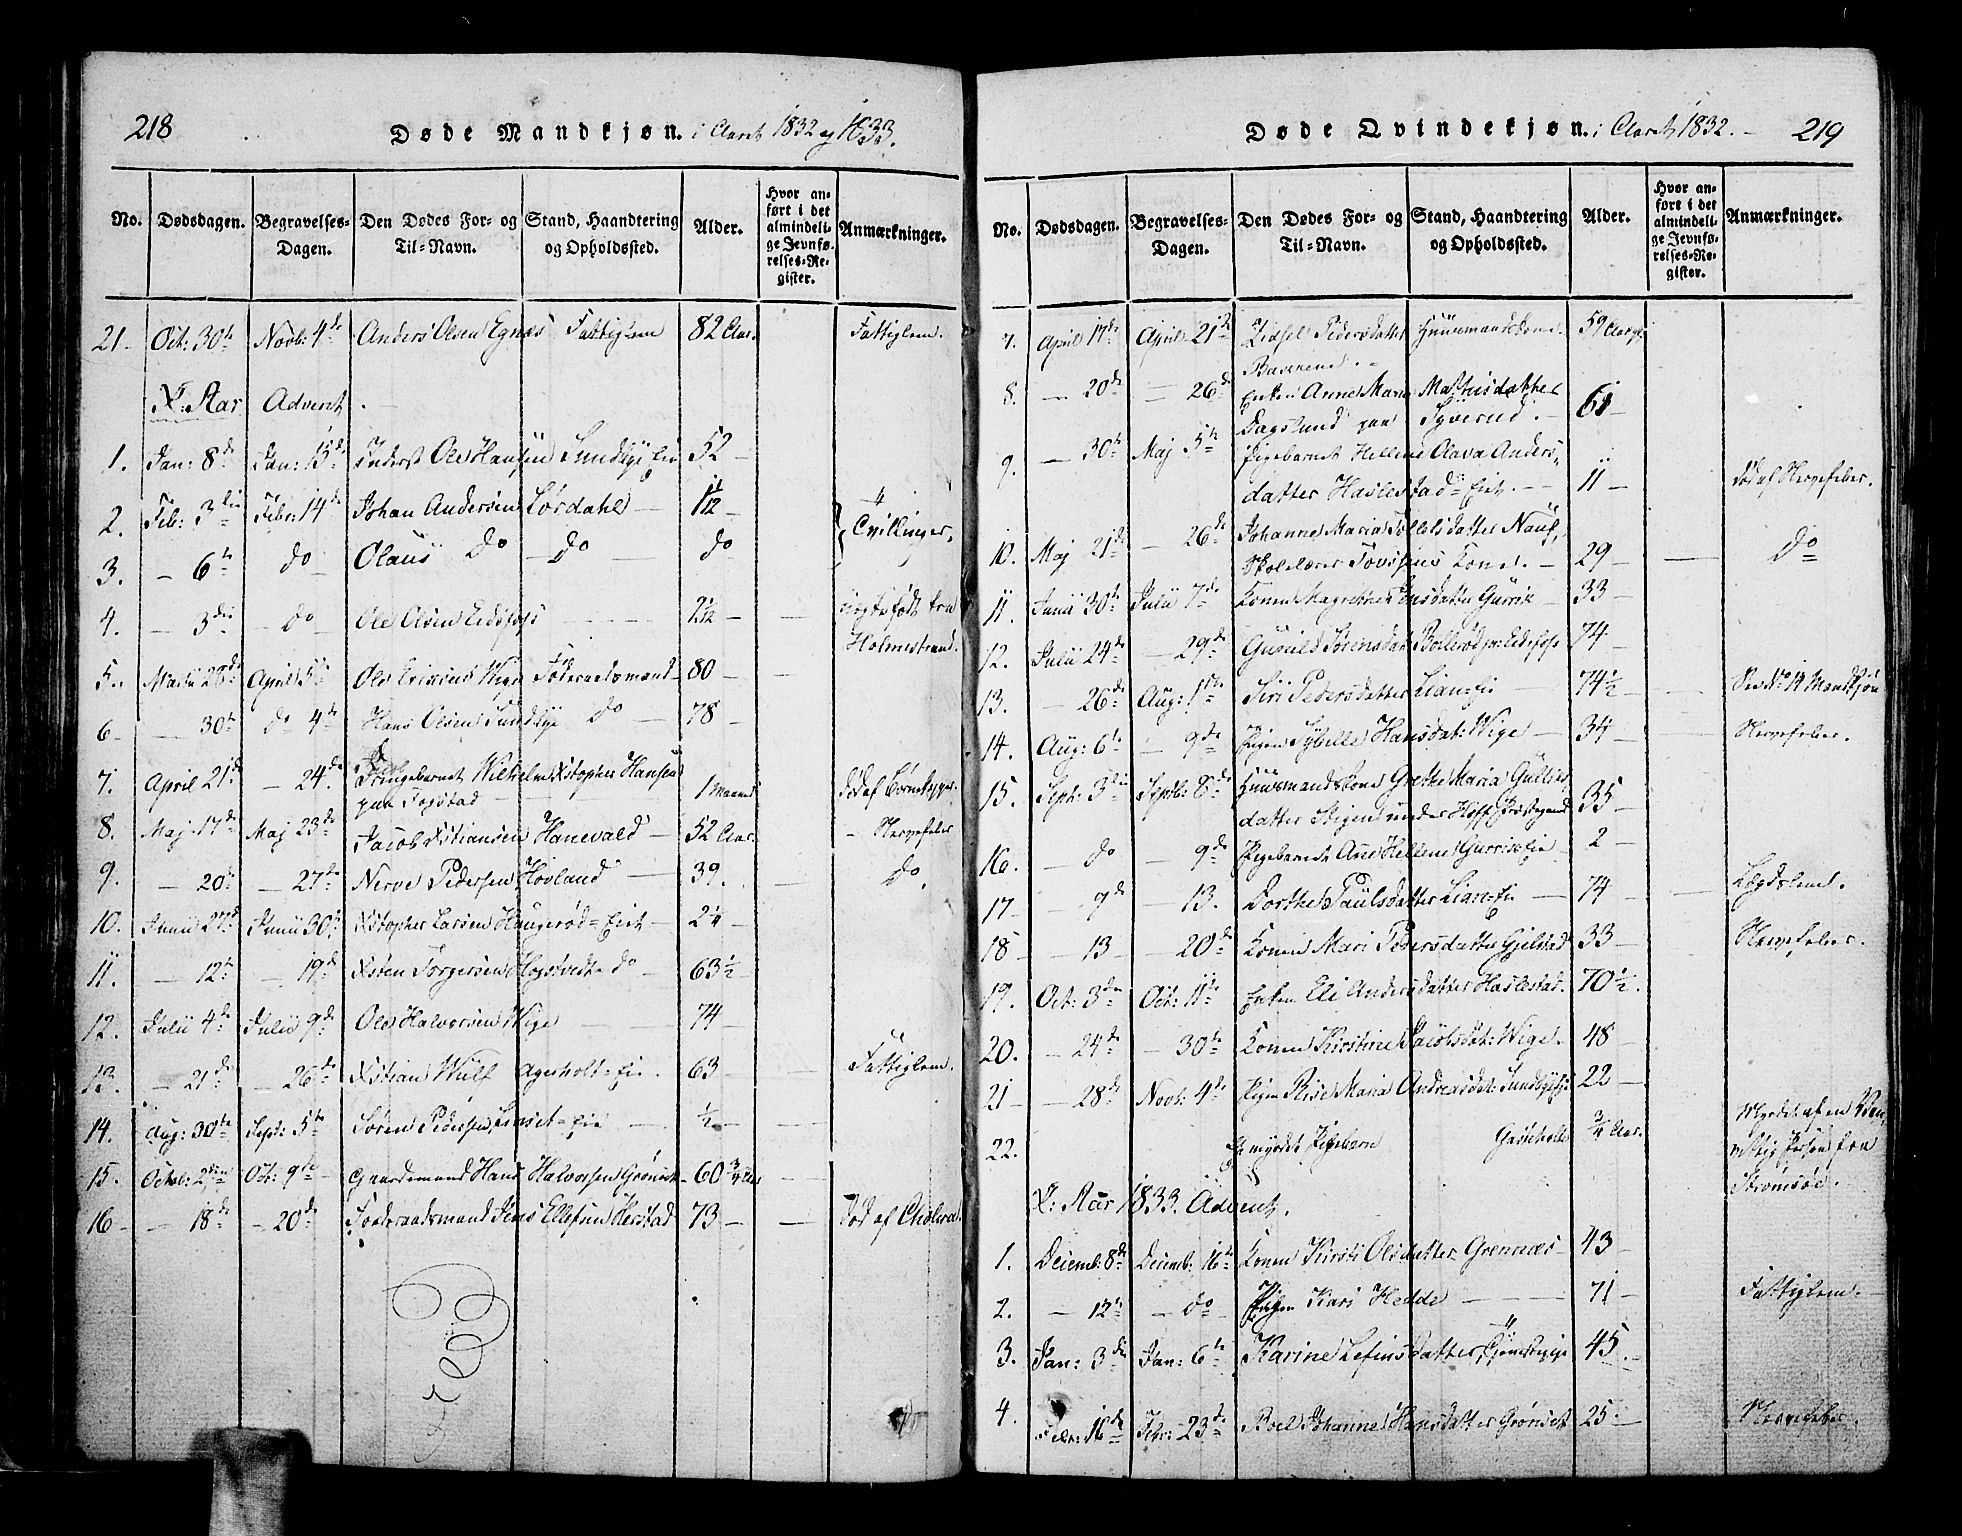 218
Døde Mandkjøn. i Aaret 1832 og 1833.
No. Dødsdagen. Begravelses-Dagen. Den Dødes For- og Til-Navn. Stand, Haandtering og Opholdssted. Alder. Hvor anført i det almindelige Jevnførelses-Register. Anmærkninger.
21. Oct: 30te Novb: 4de Anders Olsen Egnæs Fattiglem 82 Aar. Fattiglem.
N: Aar Advent.
1. Jan: 8de Jan: 15de Inderst Ole Hansen Sundbye Eie 52
2. Feb: 3die Febr: 14de Johan Andersen Lørdahl 1 1/12
3. 6te do Olaus do do do } Tvillinger.
4. 3die do Ole Olsen Eidsfos 2 1/12 født fra
Holmestrand.
5. Martii 28de April 5te Ole Erixen Wige Føderaadsmand 80
6 30te do 4te Hans Olsen Sundbye do 78
7. April 21de 24de Drengebarnet Wilhelm Xstopher Hansen
paa Fogstad 1 Maaned død af Børnekopper.
8. Maj 17de Maj 23de Jacob Xstiansen Hanevald 52 Aar. Nervefeber
9. 20de 27de Nerve Pedersen Hovland 39. do.
10. Junii 27de Junii 30te Xstopher Larsen Haugerød Eiet 2 1/4
11. 12te 19de Xsten Torgersen Hogstvedt do 63 1/2
12. Julii 4de Julii 9de Ole Halvorsen Wige 74
13. 21de 26de Xstian Wulf Agerholt Eie 63 Fattiglem.
14. Aug: 30te Sept: 5te Søren Pedersen Linset Eie 1/2
15. Octob: 2den Oct: 9de Gaardmand Hans Halvorsen Grønset 60 3/4 Aar
16 18de 20de Føderaadsmand Jens Ellefsen Herstad 73 død af Cholera.
219
Døde Qvindekjøn. i Aaret 1832.
No. Dødsdagen. Begravelses-Dagen. Den Dødes For- og Til-Navn. Stand, Haandtering og Opholdssted. Alder. Hvor anført i det almindelige Jevnførelses-Register. Anmærkninger.
7. April 17de April 21de Zidsel Pedersdatter Huusmandskone 59 Aar
8. 20de 26de Enken Anne Marie Mathisdatter
Dagslund paa Syverud. 61
9. 30te Maj 5te Pigebarnet Hellene Olava Anders-
datter Haslestad Eiet. 11 død af Nervefeber.
10. Maj 21de 26de Johanne Maria Tollefsdatter
Skolelærer Kone. 29 do
11. Junii 30te Julii 7de Konen Magrethe Jensdatter Gurrik 33
12. Julii 24de 29de Gunild Sørensdat: Bollerød pr: Eidsfos 74
13. 26de Aug: 1ste Siri Pedersdatter Lian Eie 74 1/2 See No 14 Mandkjøn
14. Aug: 6te 9de Pigen Sybille Hansdat: Wige 34 Nervefeber.
15. Sept: 3die Septb: 8de Huusmandskone Grethe Maria Gulliks-
datter Stigen under Hoff Præstegaard 35
16. do 9de Pigebarnet Ane Hellene Gurrik Eie 2
17 9de 13. Dorthe Paulsdatter Lian Eie 74 Lægdslem.
18 13 20de Konen Mari Pedersdatter Gjelstad 33 Nervefeber.
19. Oct: 3die Oct: 11te Enken Eli Andersdatter Haslestad. 70 1/2.
20. 24de 30te Konen Kirstine Jacobsdat: Wige. 48
21 28de Novb: 4de Pigen Risе Maria Andreasdat: Sundbye Eie 22
22. Et myrdet Pigebarn Gasseholt 3/4 Aar. Myrdet af en Van-
vittig Person fra
Strømsøe.
N: Aar 1833. Advent.
1. Decemb: 8de Decemb: 16de Konen Kirsti Olsdatter Grennes 43
2. 12te do Pigen Kari Hedde 71 Fattiglem.
3. Jan: 3die Jan: 6te Karine Lefinsdatter 45.
4. Febr: 16de Febr: 23de Boel Johanne Hansdatter Grønset 25 Nervefeber.